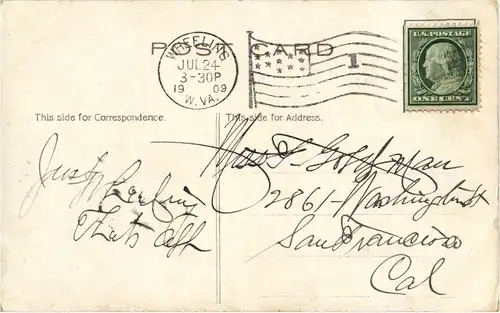 POST CARD
WHEELING
JUL 24
3-30P
1909
W. VA.
1
U.S. POSTAGE
ONE CENT
This side for Correspondence.
This side for Address.
Just
That's all
Miss F Goldman
2861- Washington St
San Francisco
Cal